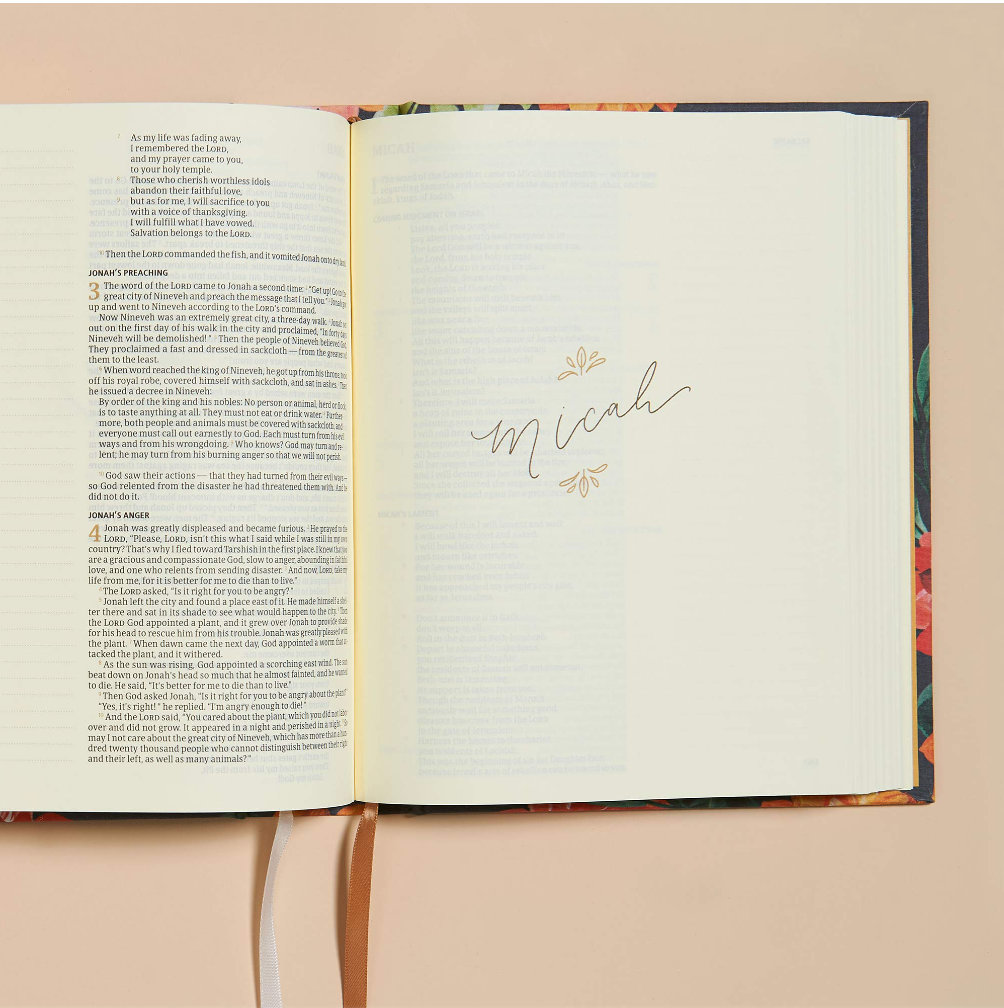 7 As my life was fading away,
I remembered the LORD,
and my prayer came to you,
to your holy temple.
8 Those who cherish worthless idols
abandon their faithful love,
9 but as for me, I will sacrifice to you
with a voice of thanksgiving.
I will fulfill what I have vowed.
Salvation belongs to the LORD.
10 Then the LORD commanded the fish, and it vomited Jonah onto dry land.
JONAH'S PREACHING
3 The word of the LORD came to Jonah a second time: 2 "Get up! Go to the
great city of Nineveh and preach the message that I tell you." 3 Jonah got
up and went to Nineveh according to the LORD's command.
Now Nineveh was an extremely great city, a three-day walk. 4 Jonah set
out on the first day of his walk in the city and proclaimed, "In forty days
Nineveh will be demolished!" 5 Then the people of Nineveh believed God.
They proclaimed a fast and dressed in sackcloth — from the greatest of
them to the least.
6 When word reached the king of Nineveh, he got up from his throne, took
off his royal robe, covered himself with sackcloth, and sat in ashes. 7 Then
he issued a decree in Nineveh:
By order of the king and his nobles: No person or animal, herd or flock,
is to taste anything at all. They must not eat or drink water. 8 Further-
more, both people and animals must be covered with sackcloth, and
everyone must call out earnestly to God. Each must turn from his evil
ways and from his wrongdoing. 9 Who knows? God may turn and re-
lent; he may turn from his burning anger so that we will not perish.
10 God saw their actions — that they had turned from their evil ways —
so God relented from the disaster he had threatened them with. And he
did not do it.
JONAH'S ANGER
4 Jonah was greatly displeased and became furious. 2 He prayed to the
LORD, "Please, LORD, isn't this what I said while I was still in my own
country? That's why I fled toward Tarshish in the first place. I knew that you
are a gracious and compassionate God, slow to anger, abounding in faithful
love, and one who relents from sending disaster. 3 And now, LORD, take my
life from me, for it is better for me to die than to live."
4 The LORD asked, "Is it right for you to be angry?"
5 Jonah left the city and found a place east of it. He made himself a shel-
ter there and sat in its shade to see what would happen to the city. 6 Then
the LORD God appointed a plant, and it grew over Jonah to provide shade
for his head to rescue him from his trouble. Jonah was greatly pleased with
the plant. 7 When dawn came the next day, God appointed a worm that at-
tacked the plant, and it withered.
8 As the sun was rising, God appointed a scorching east wind. The sun
beat down on Jonah's head so much that he almost fainted, and he wanted
to die. He said, "It's better for me to die than to live."
9 Then God asked Jonah, "Is it right for you to be angry about the plant?"
"Yes, it's right!" he replied. "I'm angry enough to die!"
10 And the LORD said, "You cared about the plant, which you did not labor
over and did not grow. It appeared in a night and perished in a night. 11 So
may I not care about the great city of Nineveh, which has more than a hun-
dred twenty thousand people who cannot distinguish between their right
and their left, as well as many animals?"
micah